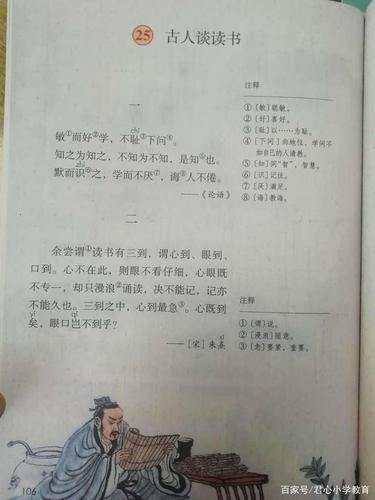 25 古人谈读书
一
chǐ
敏①而好②学，不耻③下问④。
zhì
知之为知之，不知为不知，是知⑤也。
默而识⑥之，学而不厌⑦，诲⑧人不倦。
——《论语》
注释
①〔敏〕聪敏。
②〔好〕喜好。
③〔耻〕以……为耻。
④〔下问〕向地位、学问不
如自己的人请教。
⑤〔知〕同“智”，智慧。
⑥〔识〕记住。
⑦〔厌〕满足。
⑧〔诲〕教诲。
二
余尝谓①读书有三到，谓心到、眼到、
口到。心不在此，则眼不看仔细，心眼既
不专一，却只漫浪②诵读，决不能记，记亦
不能久也。三到之中，心到最急③。心既到
yǐ qǐ
矣，眼口岂不到乎？
xī
——［宋］朱熹
注释
①〔谓〕说。
②〔漫浪〕随意。
③〔急〕要紧，重要。
106
百家号/君心小学教育